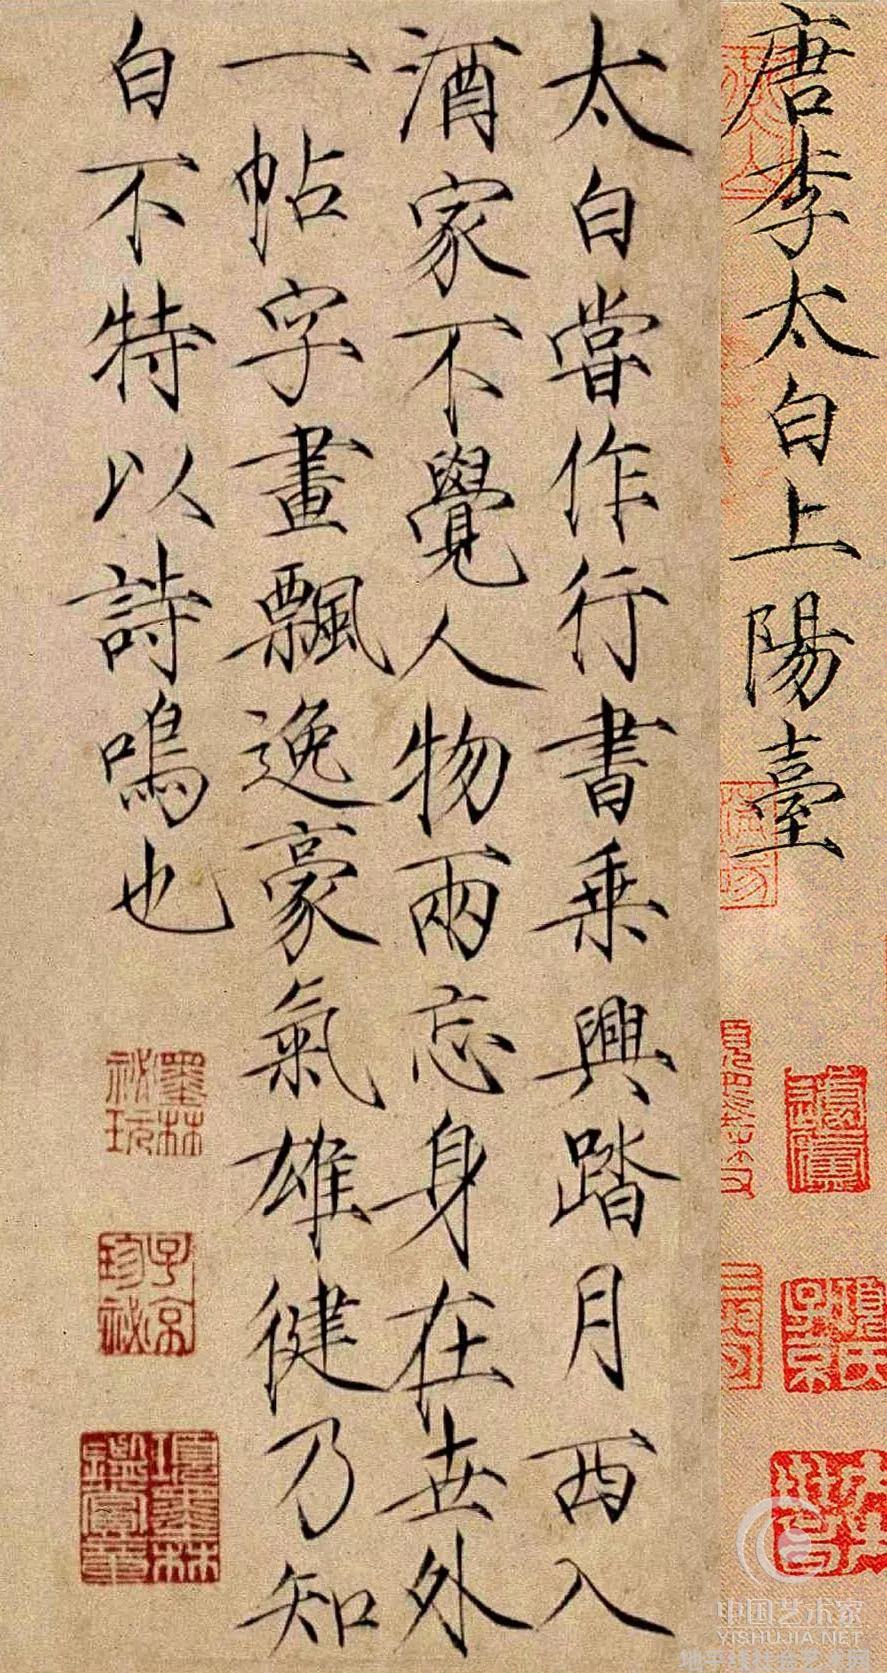 唐李太白上陽臺
太白嘗作行書乗興踏月西入
酒家不覺人物兩忘身在世外
一帖字畫飄逸豪氣雄健乃知
白不特以詩鳴也
墨林
祕玩
子京
珍祕
項墨林
鑑賞章
項氏
子京
中国艺术家
YISHUJIA.NET